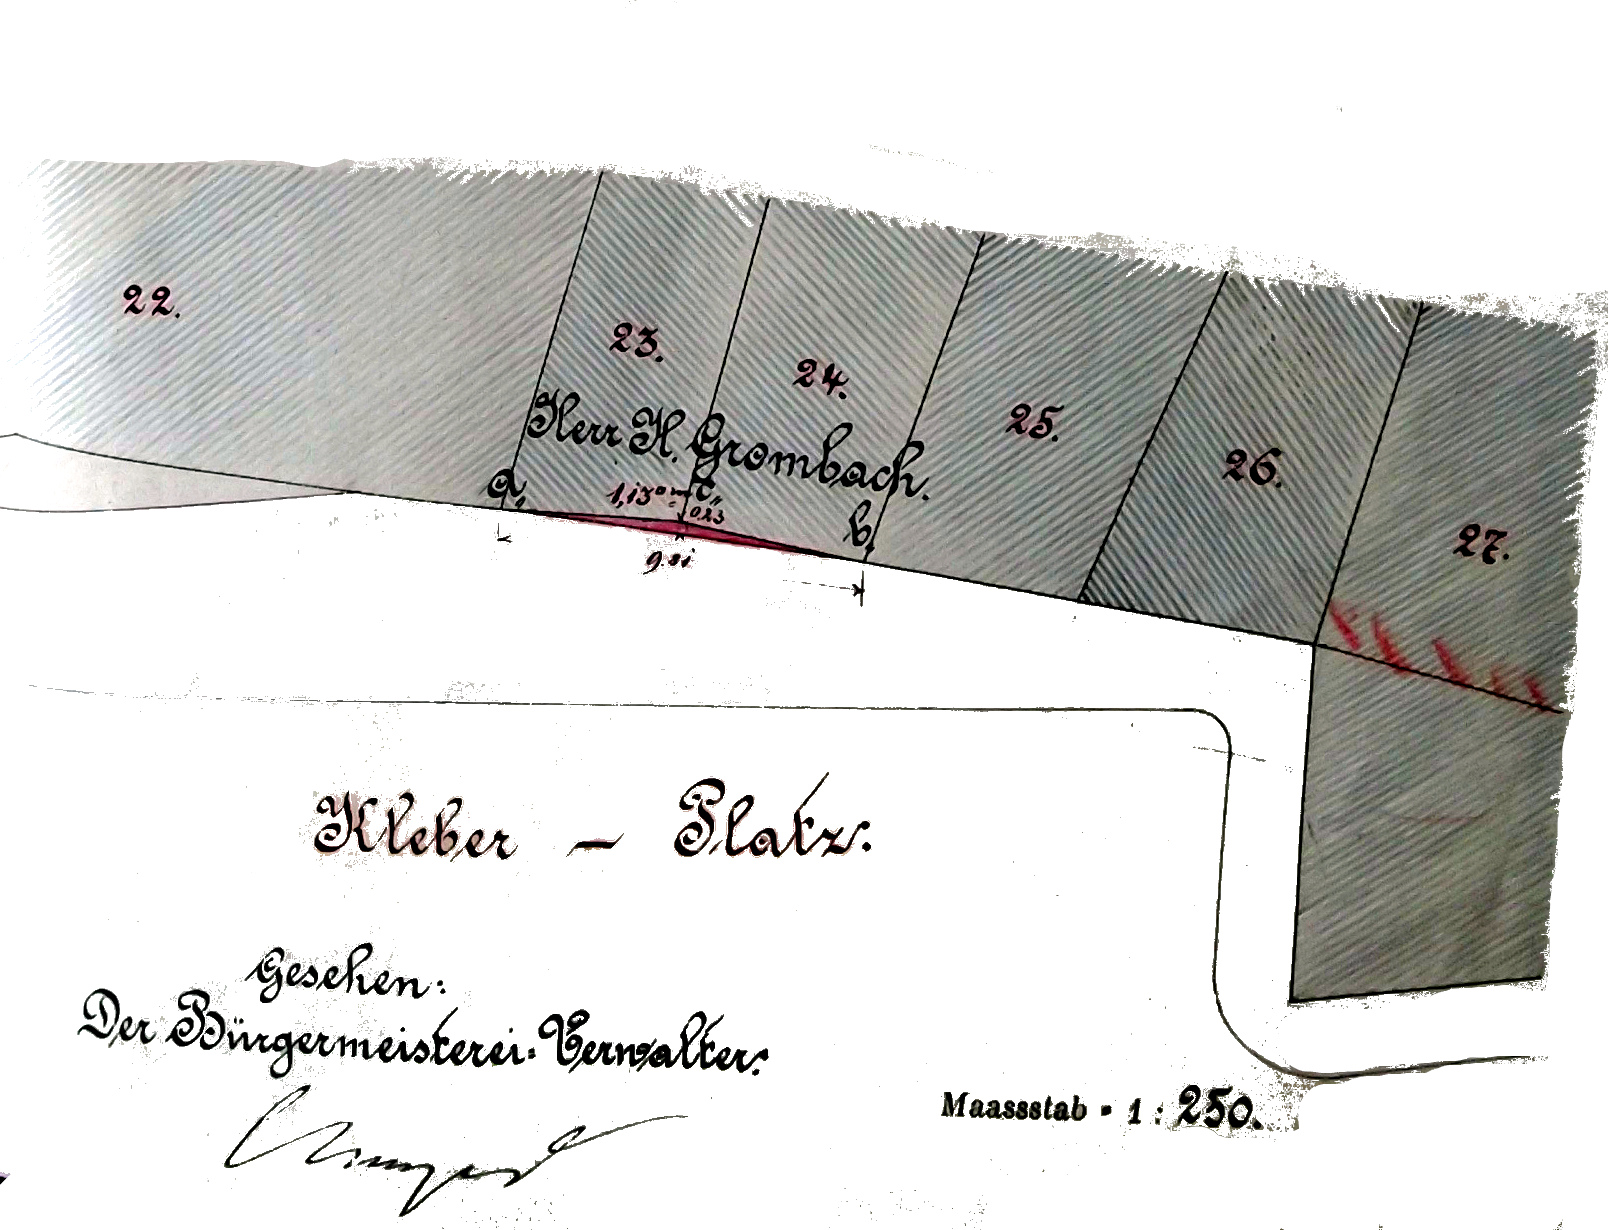 22.
23.
24.
25.
26.
27.
Herr H. Grombach.
a,
c,,
b,
0,23
Kleber – Platz.
Gesehen:
Der Bürgermeisterei-Verwalter:
Maassstab = 1 : 250.